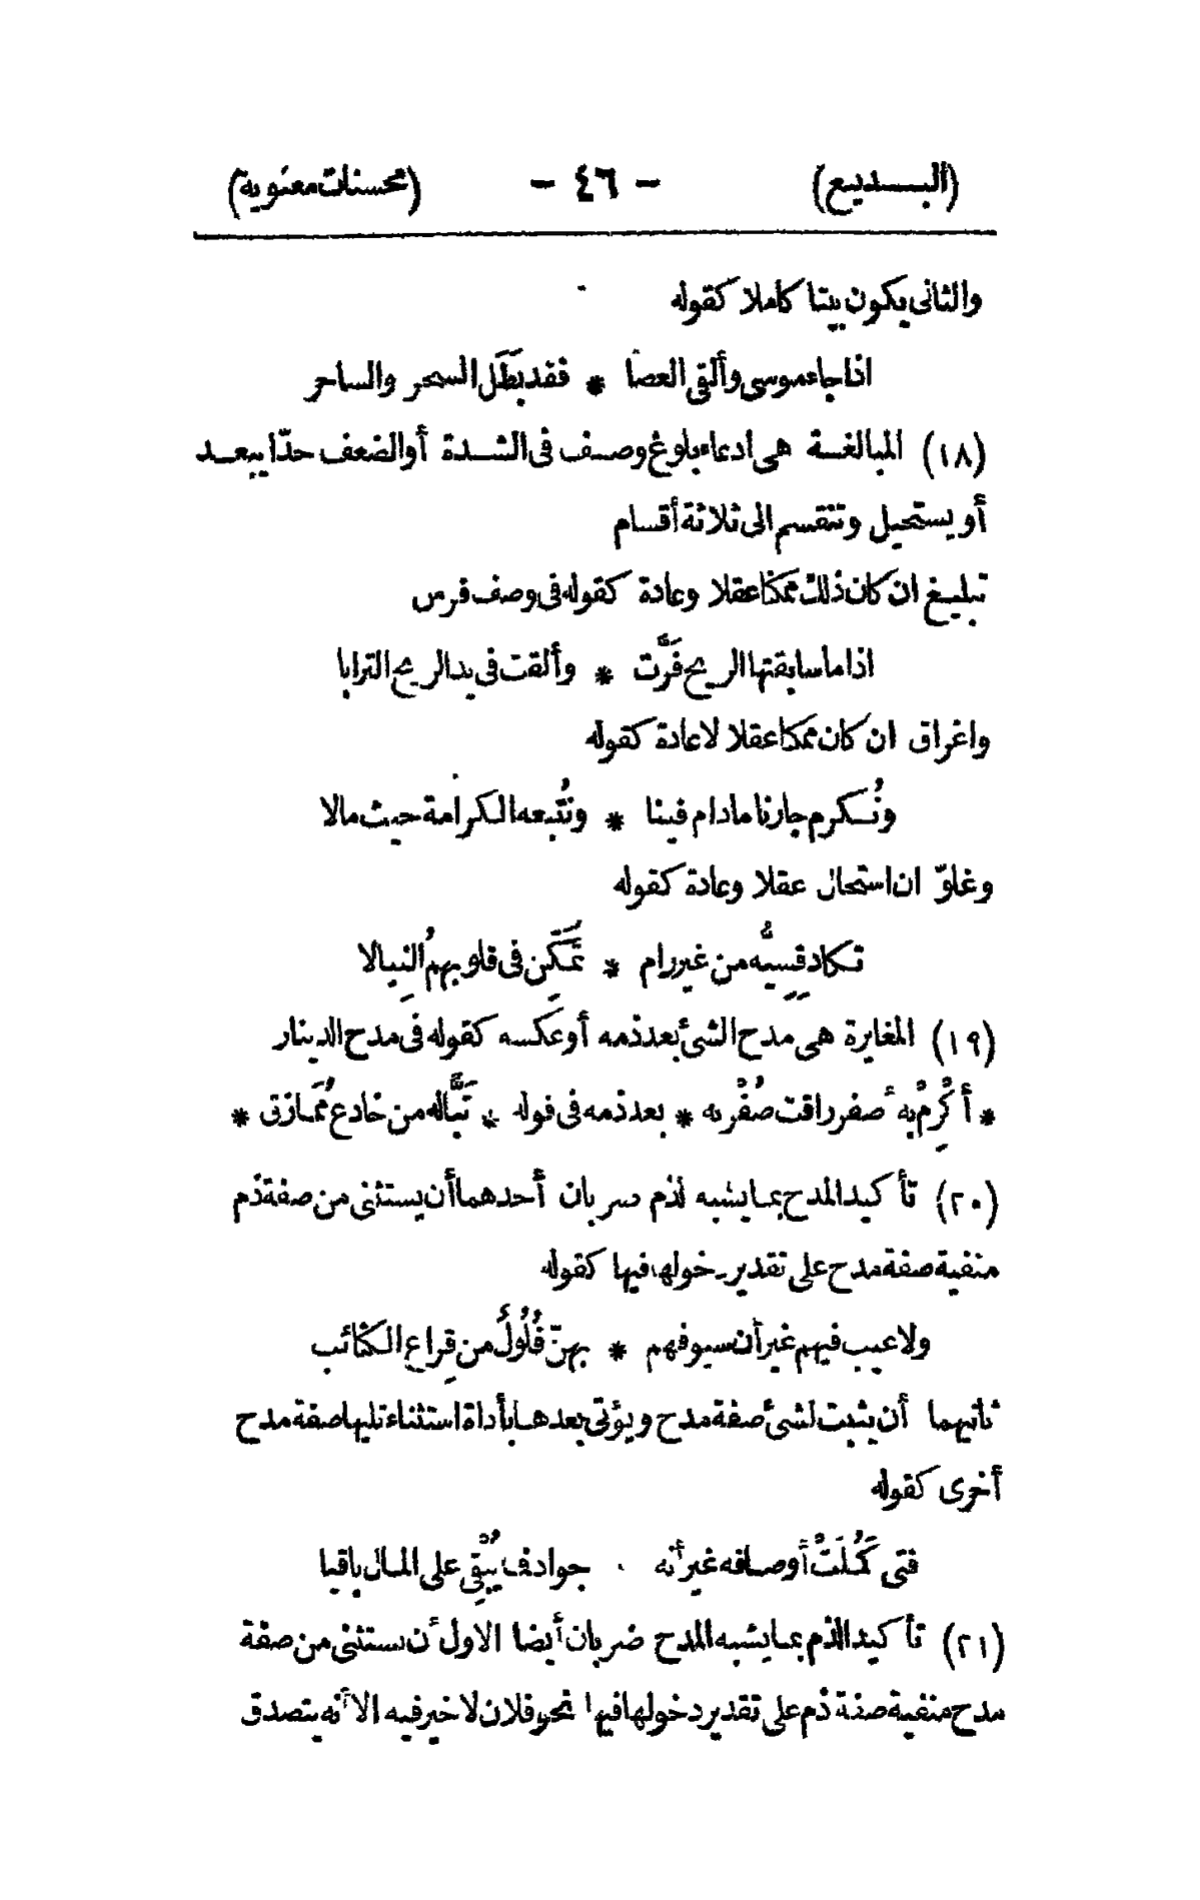 (البديع) - ٤٦ - (محسنات معنوية)
والثانى يكون بيتا كاملا كقوله
اذا جاء موسى وألقى العصا * فقد بَطَل السحر والساحر
(١٨) المبالغة هى ادعاء بلوغ وصف فى الشدة أو الضعف حدّا يبعد
أو يستحيل وتنقسم الى ثلاثة أقسام
تبليغ ان كان ذلك ممكنا عقلا وعادة كقوله فى وصف فرس
اذا ما سابقتها الريح فَرَّت * وألقت فى يد الريح الترابا
واغراق ان كان ممكنا عقلا لا عادة كقوله
ونُكرم جارنا مادام فينا * ونُتْبعه الكرامة حيث مالا
وغلوّ ان استحال عقلا وعادة كقوله
تكاد قِسِيُّه من غير رام * تَمَكَّن فى قلوبهمُ النِبالا
(١٩) المغايرة هى مدح الشئ بعد ذمه أو عكسه كقوله فى مدح الدينار
* أَكْرِمْ به أصفر راقت صُفْرته * بعد ذمه فى قوله * تَبًّا له من خادع مُمَاذق *
(٢٠) تأكيد المدح بما يشبه الذم ضربان أحدهما أن يستثنى من صفة ذم
منفية صفة مدح على تقدير دخولها فيها كقوله
ولا عيب فيهم غير أن سيوفهم * بهنّ فُلُولٌ من قِراع الكتائب
ثانيهما أن يثبت لشئ صفة مدح ويؤتى بعدها بأداة استثناء تليها صفة مدح
أخرى كقوله
فتى كَمُلَتْ أوصافه غير أنه . جواد فما يُبْقِى على المال باقيا
(٢١) تأكيد الذم بما يشبه المدح ضربان أيضا الاول أن يستثنى من صفة
مدح منفية صفة ذم على تقدير دخولها فيها نحو فلان لا خير فيه الا أنه يتصدق